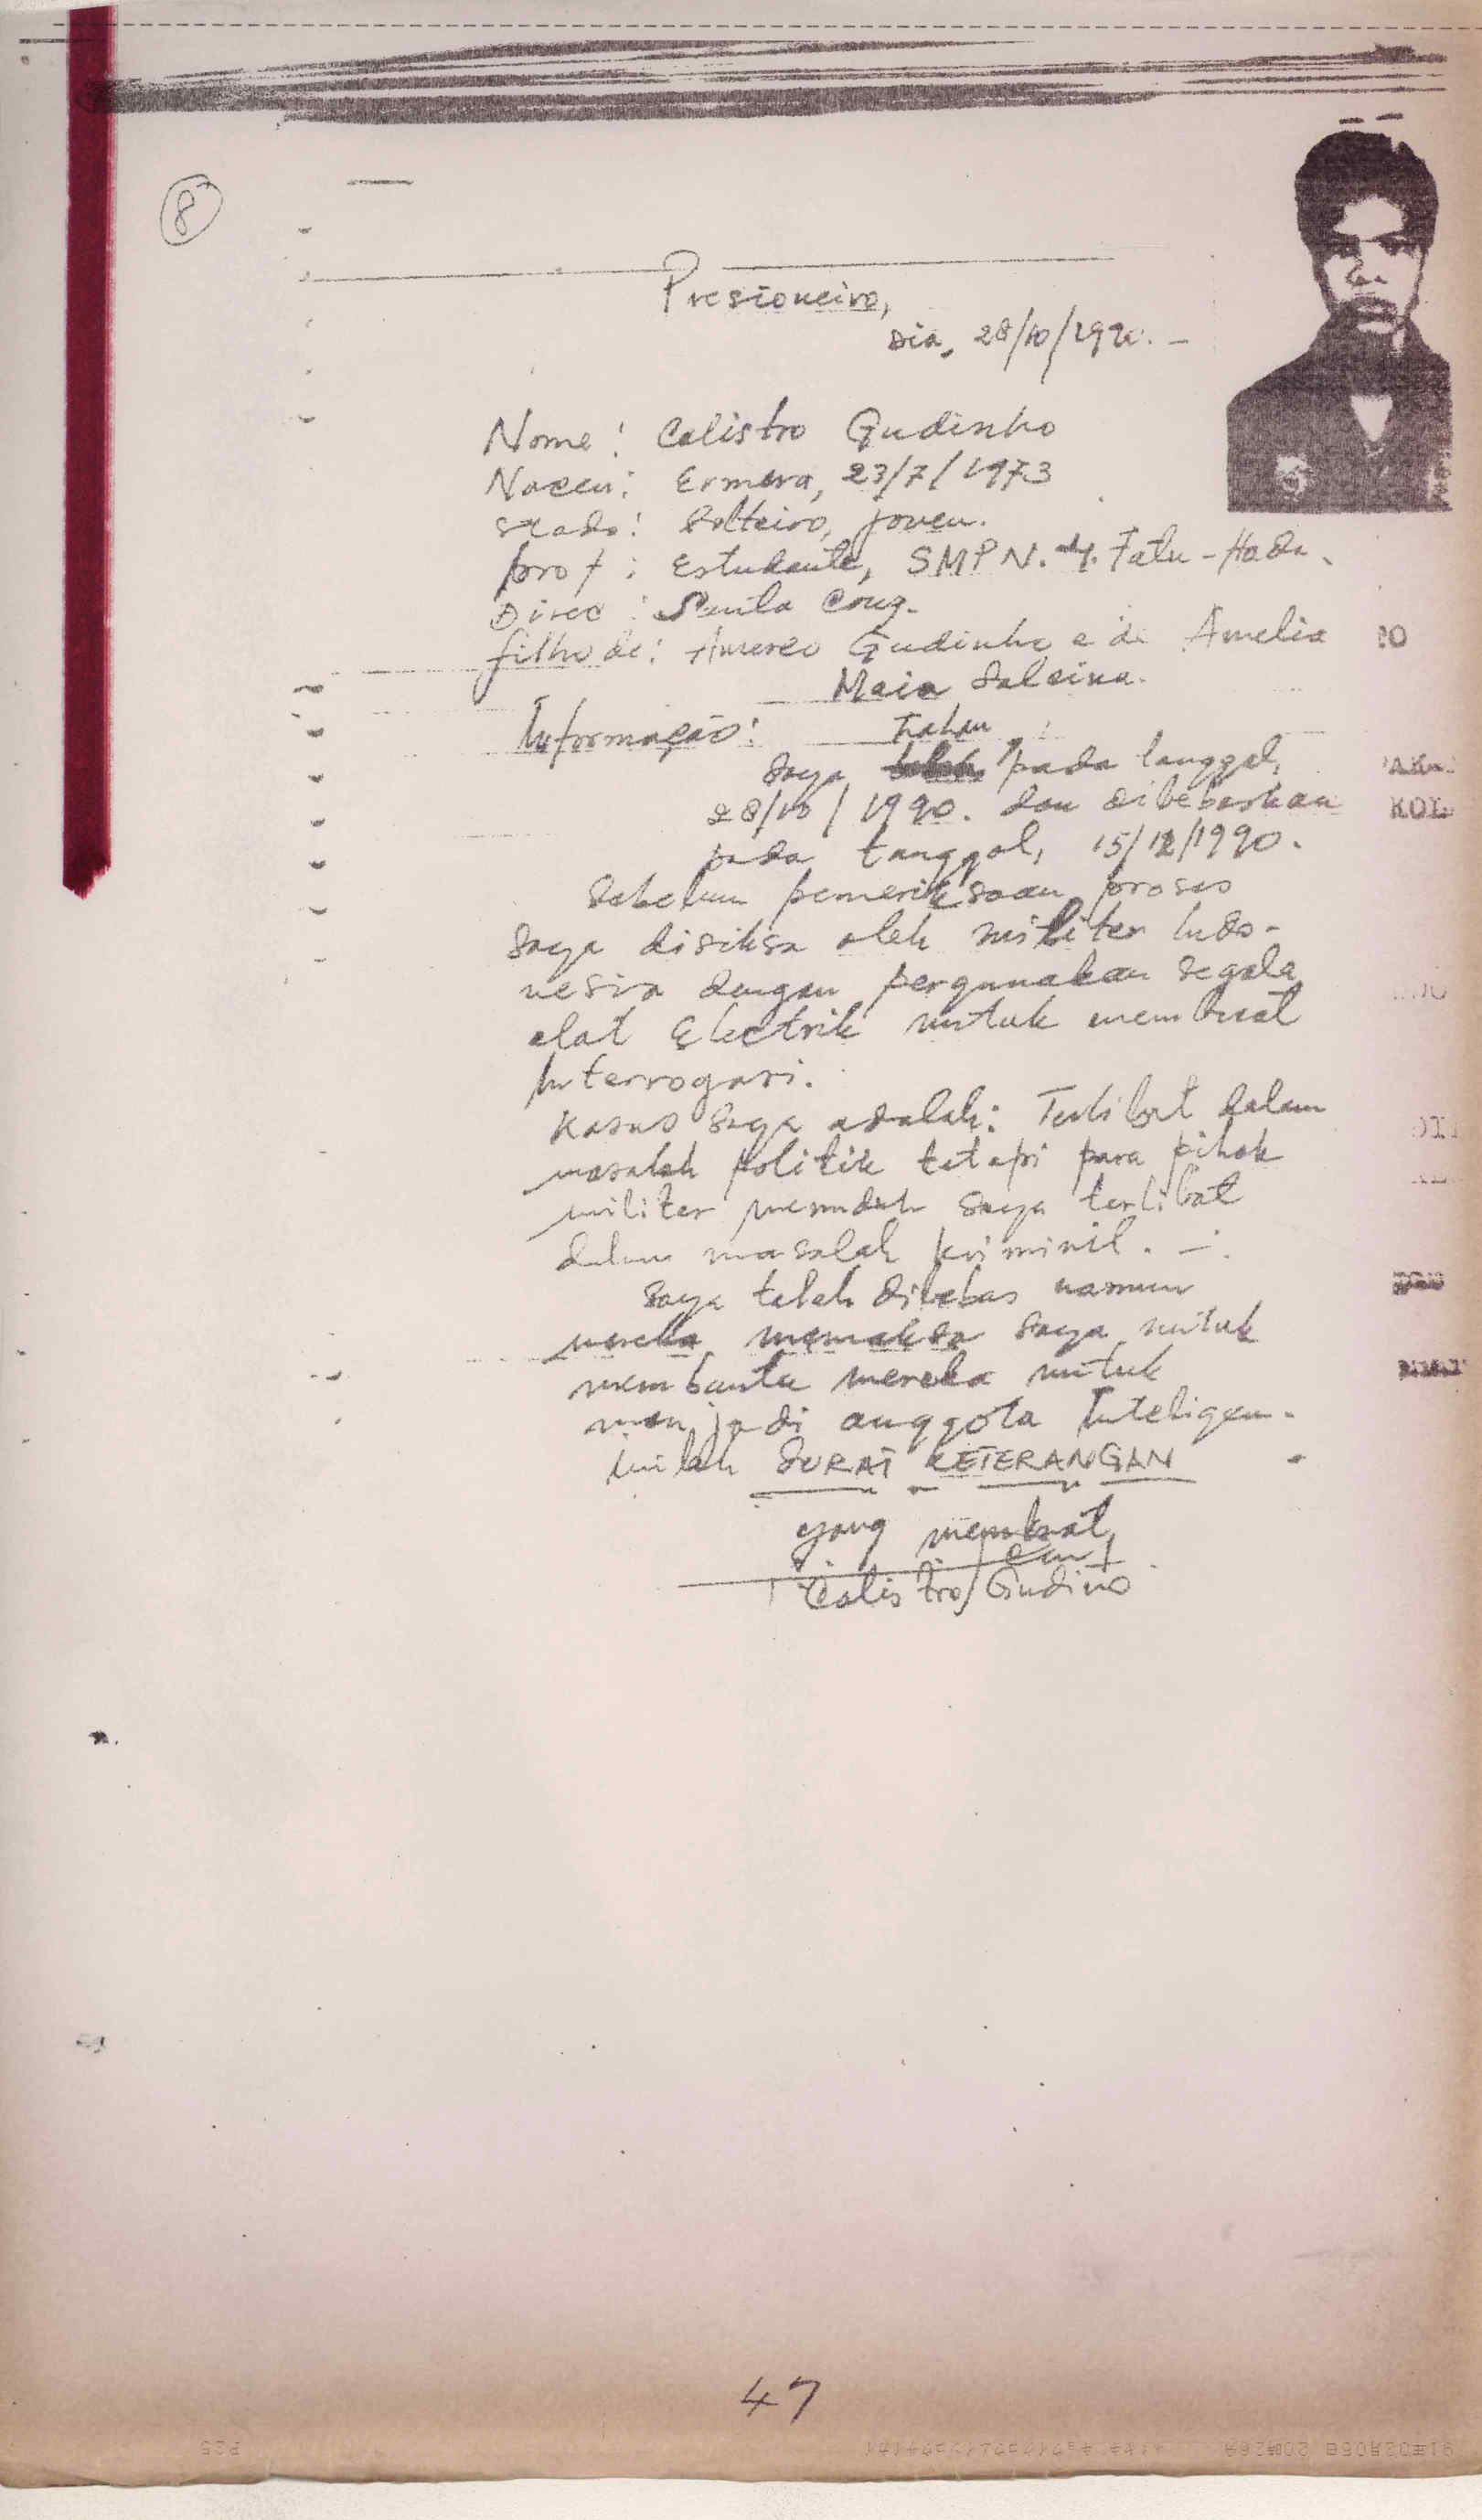 8
Presioneiro,
Dia, 28/10/1990. -
Nome: Calistro Gudinho
Naceu: Ermera, 23/7/1973
Stado: Solteiro, joven.
prof: Estudante, SMP N. 4. Fatu-Hada.
Direc: Santa Cruz.
filho de: Gudinho e de Amelia
Maia Salsina.
Informação: Tahan
Saya pada tanggal,
28/10/1990. dan dibebaskan
pada tanggal, 15/12/1990.
Sebelum pemeriksaan proses
saya disiksa oleh militer Indo-
nesia dengan pergunakan segala
alat Electrik untuk membuat
Interrogasi.
Kasus saya adalah: Terlibat dalam
masalah politik tetapi para pihak
militer menuduh saya terlibat
dalam masalah kriminil. -
Saya telah dibebas namun
mereka memaksa saya untuk
membantu mereka untuk
menjadi anggota Inteligen.
Inilah SURAT KETERANGAN
yang membuat,
Calistro Gudino
RO
KOL
47
P25
91年02月05日 20時26分